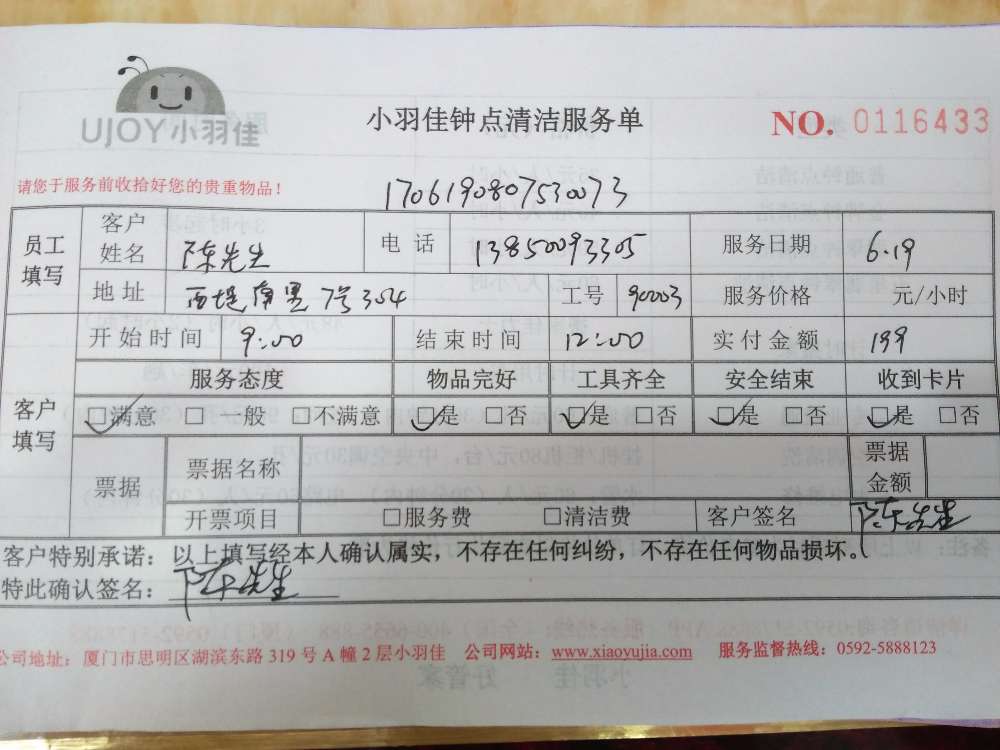 UJOY小羽佳
小羽佳钟点清洁服务单
NO. 0116433
请您于服务前收拾好您的贵重物品!
1706190807530073
员工填写 客户姓名 陈先生 电话 13850093305 服务日期 6.19
地址 西堤南里7号304 工号 90003 服务价格 元/小时
客户填写 开始时间 9:00 结束时间 12:00 实付金额 199
服务态度 物品完好 工具齐全 安全结束 收到卡片
☑满意 □一般 □不满意 ☑是 □否 ☑是 □否 ☑是 □否 ☑是 □否
票据 票据名称 票据金额
开票项目 □服务费 □清洁费 客户签名 陈先生
客户特别承诺:以上填写经本人确认属实,不存在任何纠纷,不存在任何物品损坏。
特此确认签名:陈先生
公司地址:厦门市思明区湖滨东路319号A幢2层小羽佳 公司网站:www.xiaoyujia.com 服务监督热线:0592-5888123